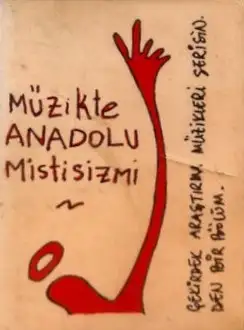 Müzikte
ANADOLU
Mistisizmi
ÇEKİRDEK ARAŞTIRMA MÜZİKLERİ SERİSİN.
DEN BİR BÖLÜM.